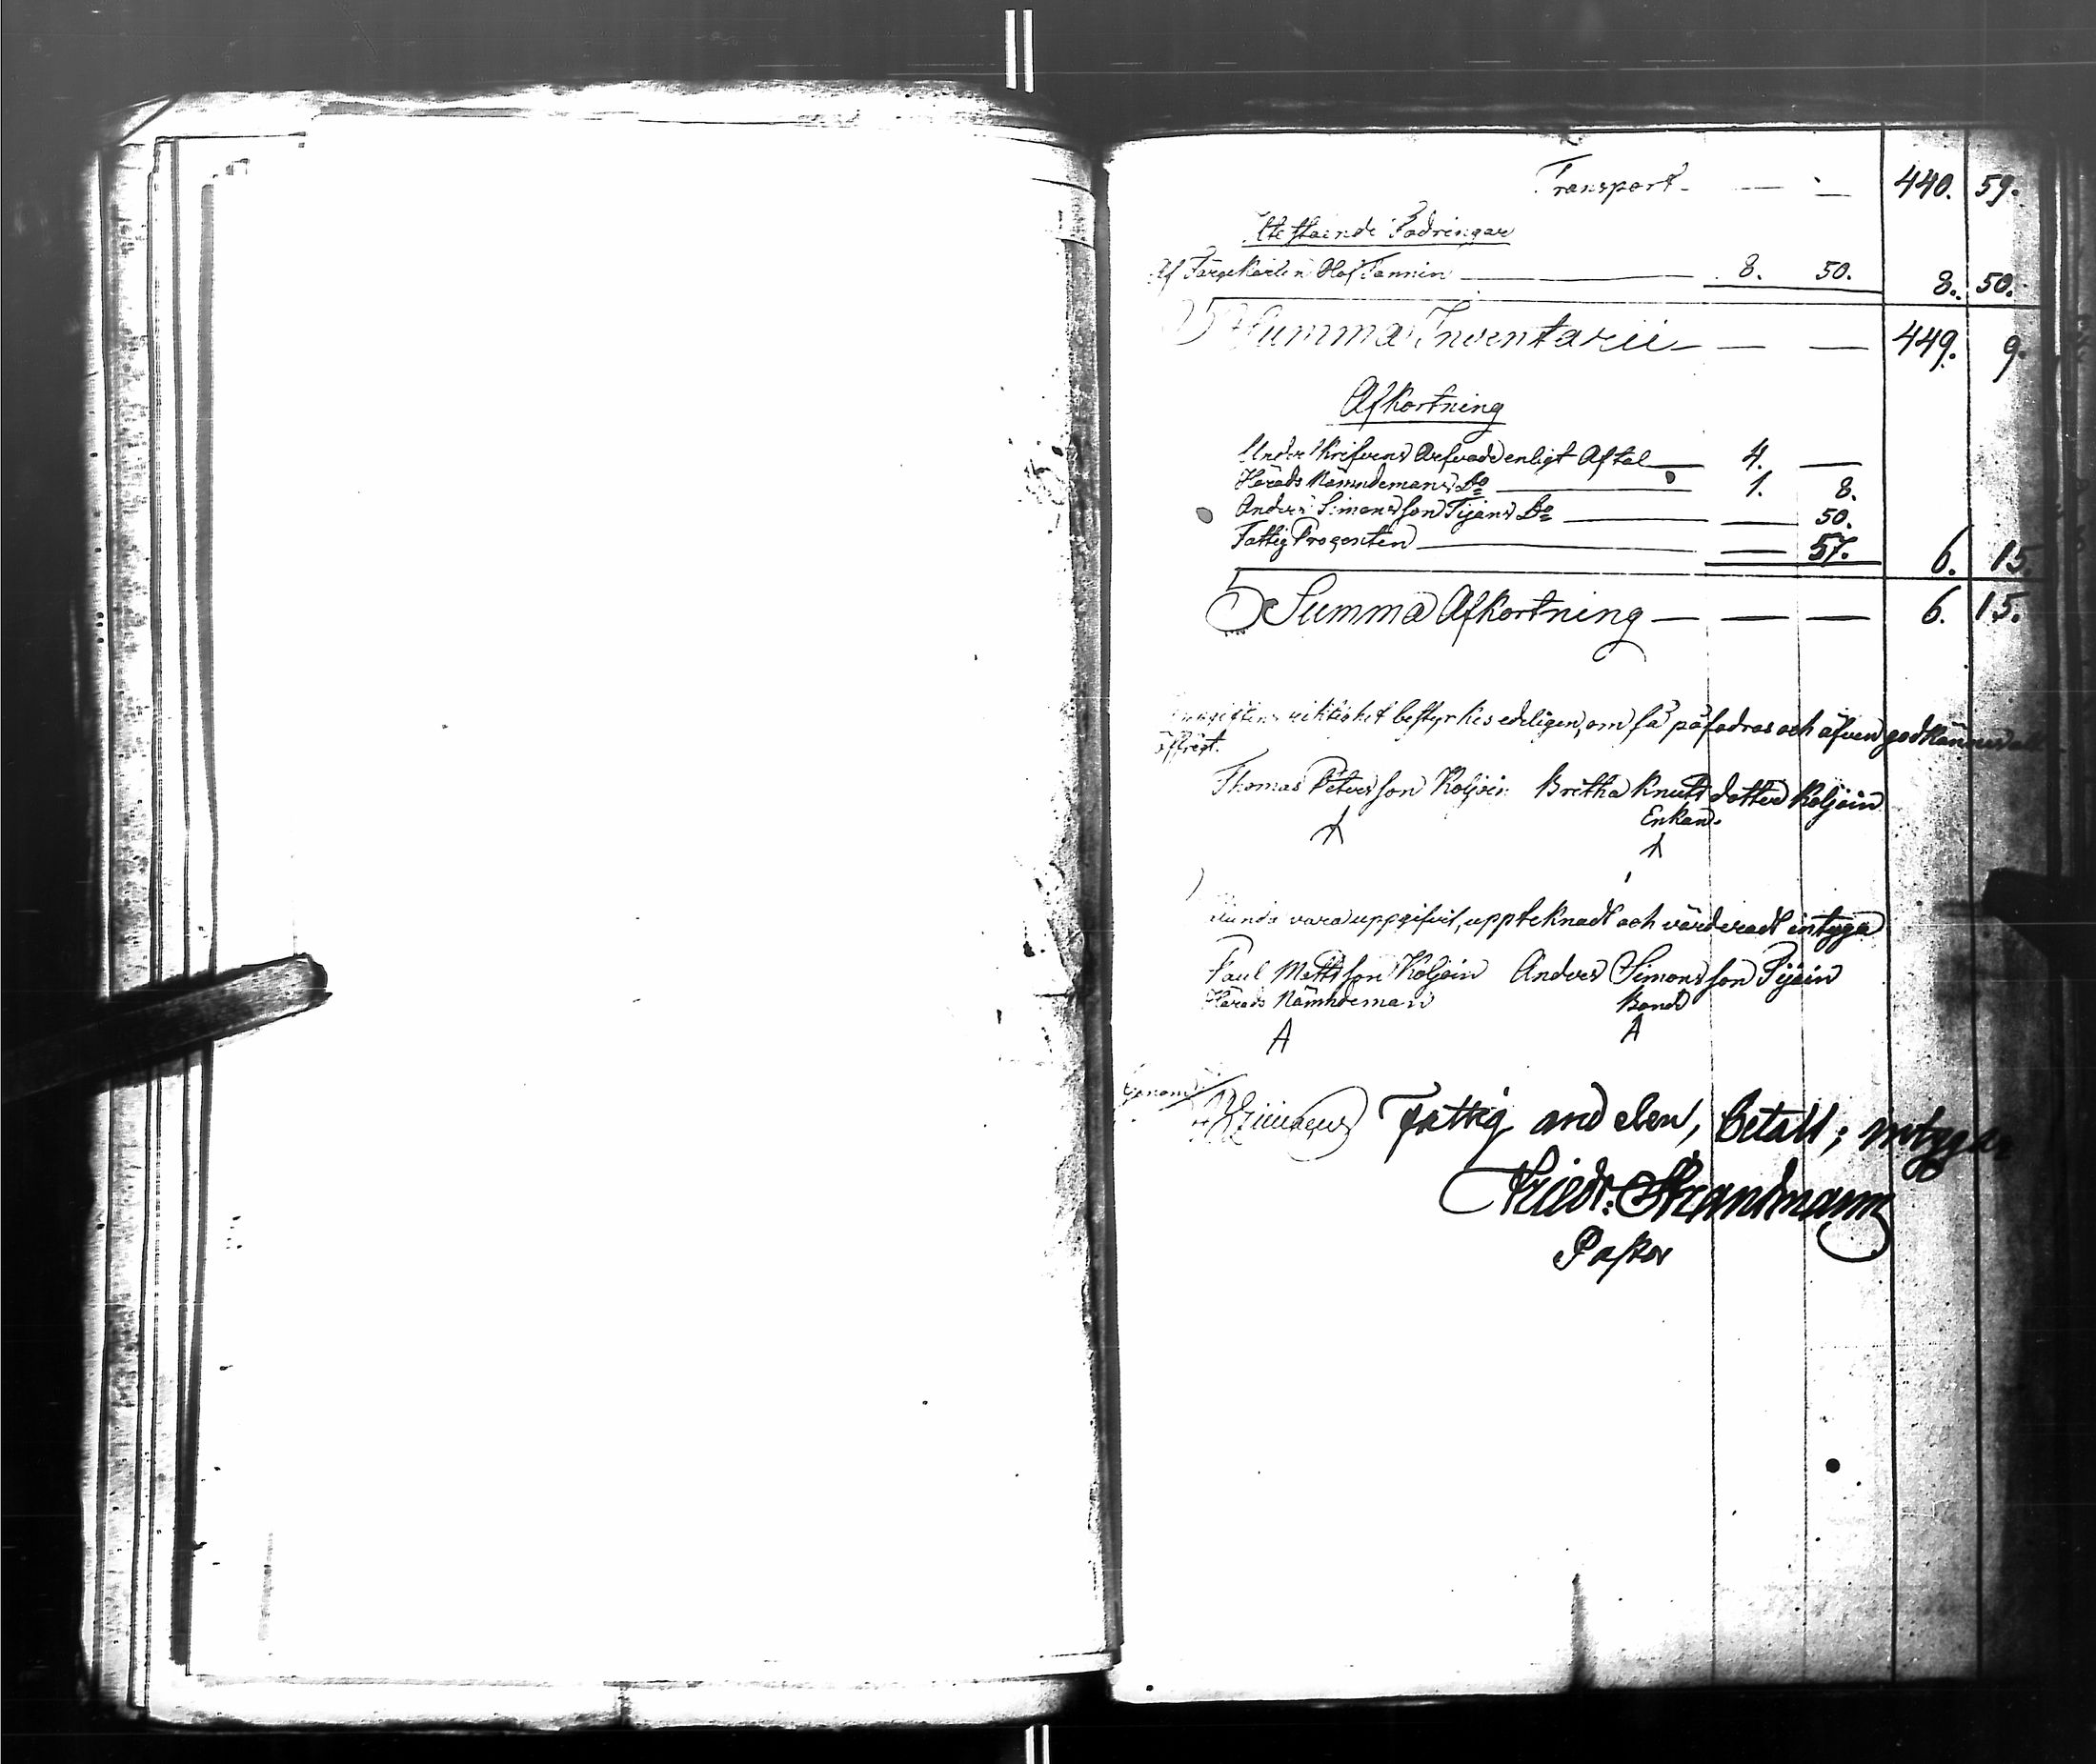 Transport — — 440. 59.
Utestående Fodringar
Af Färgekarlen Olof Tannin — 8. 50. 8. 50.
Summa Inventarii — — — 449. 9.
Afkortning
Underskrifvens Arfvode enligt Aftal — 4. —
Härads Nämndemans Do — 1. 8.
Anders Simonsson Tijans Do — — 50.
Fattig Procenten — — 57. 6. 15.
Summa Afkortning — — — 6. 15.
riktighet bestyrkes edeligen, om så påfodras och äfven godkännes all
Thomas Petersson Koljoin Britha Knuts dotter Koljoin
Enkan.
vara uppgifvit, uppteknadt och värderadt intyga
Paul Mattsson Koljoin Anders Simonsson Pijoin
Härads Nämndeman Bonde
A A
Genom
Fattig andelen, betalt; intygar
Friedr. Strandmann
Pastor